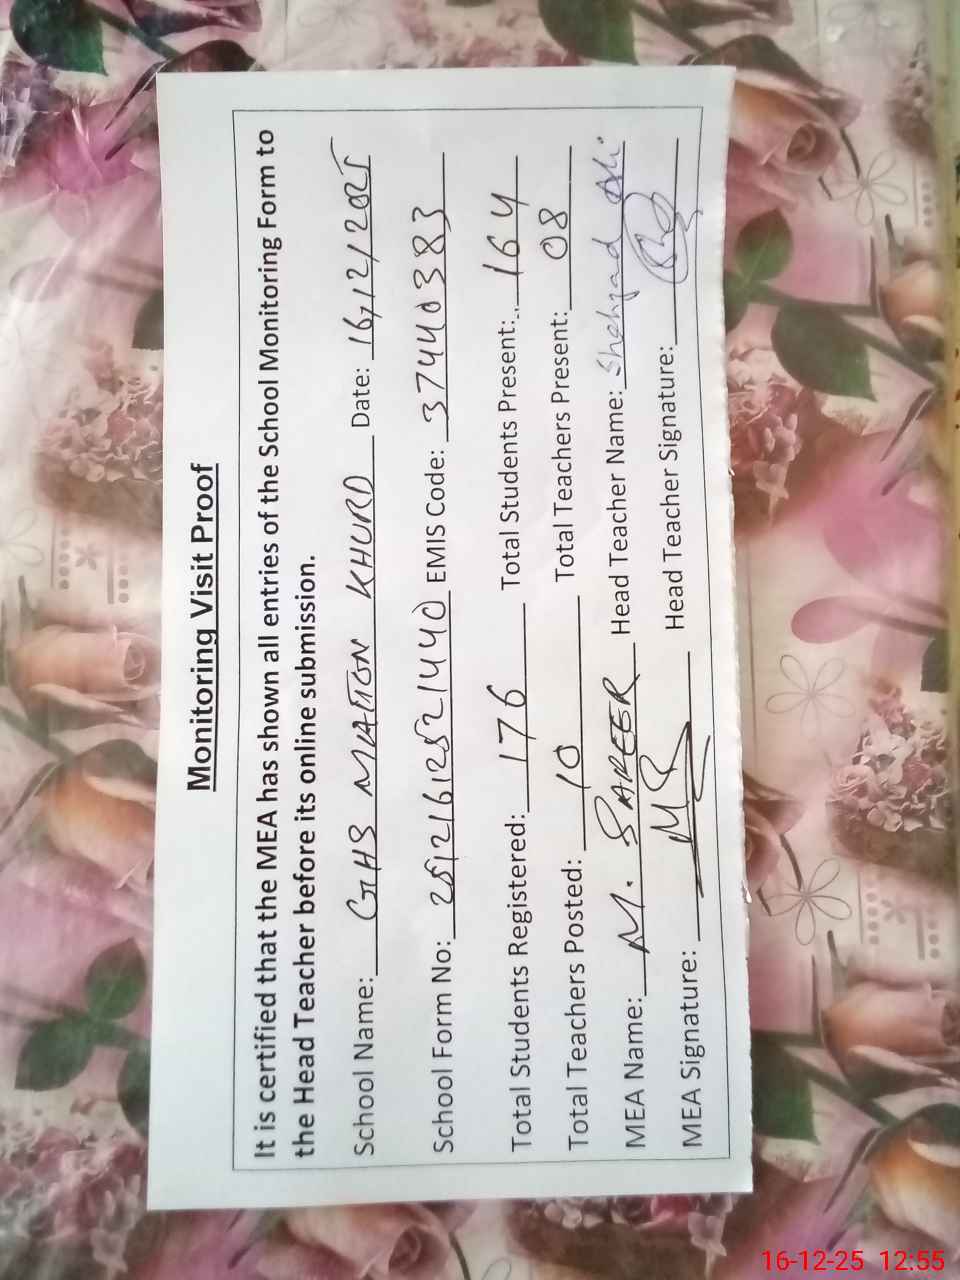 Monitoring Visit Proof
It is certified that the MEA has shown all entries of the School Monitoring Form to
the Head Teacher before its online submission.
School Name: GHS MATION KHURD Date: 16/12/2025
School Form No: EMIS Code: 37440383
Total Students Registered: 176 Total Students Present: 164
Total Teachers Posted: 10 Total Teachers Present: 08
MEA Name: M. SAREER Head Teacher Name: Shehzad Ali
MEA Signature: Head Teacher Signature:
16-12-25 12:55